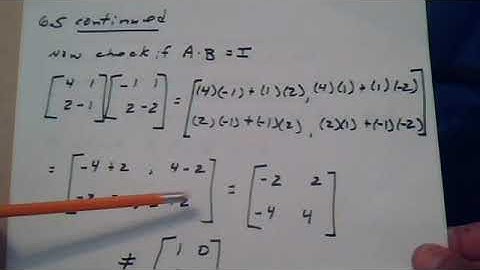 6.5 continued
Now check if A·B = I
[4 1 [-1 1 = [(4)(-1)+(1)(2), (4)(1)+(1)(-2)
2 -1] 2 -2] (2)(-1)+(-1)(2), (2)(1)+(-1)(-2)]
= [-4+2 , 4-2 = [-2 2
-2 2] -4 4]
≠ [1 0